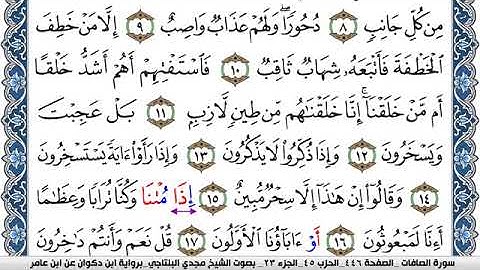 مِن كُلِّ جَانِبٍ ٨ دُحُورًا وَلَهُمْ عَذَابٌ وَاصِبٌ ٩ إِلَّا مَنْ خَطِفَ
الْخَطْفَةَ فَأَتْبَعَهُ شِهَابٌ ثَاقِبٌ ١٠ فَاسْتَفْتِهِمْ أَهُمْ أَشَدُّ خَلْقًا
أَم مَّنْ خَلَقْنَا إِنَّا خَلَقْنَاهُم مِّن طِينٍ لَّازِبٍ ١١ بَلْ عَجِبْتَ
وَيَسْخَرُونَ ١٢ وَإِذَا ذُكِّرُوا لَا يَذْكُرُونَ ١٣ وَإِذَا رَأَوْا ءَايَةً يَسْتَسْخِرُونَ
١٤ وَقَالُوا إِنْ هَٰذَا إِلَّا سِحْرٌ مُّبِينٌ ١٥ إِذَا مُتْنَا وَكُنَّا تُرَابًا وَعِظَامًا
أَءِنَّا لَمَبْعُوثُونَ ١٦ أَوْ ءَابَاؤُنَا الْأَوَّلُونَ ١٧ قُلْ نَعَمْ وَأَنتُمْ دَاخِرُونَ
سورة الصافات_ الصفحة ٤٤٦_ الحزب ٤٥_ الجزء ٢٣_ بصوت الشيخ مجدي البلتاجي_برواية ابن ذكوان عن ابن عامر